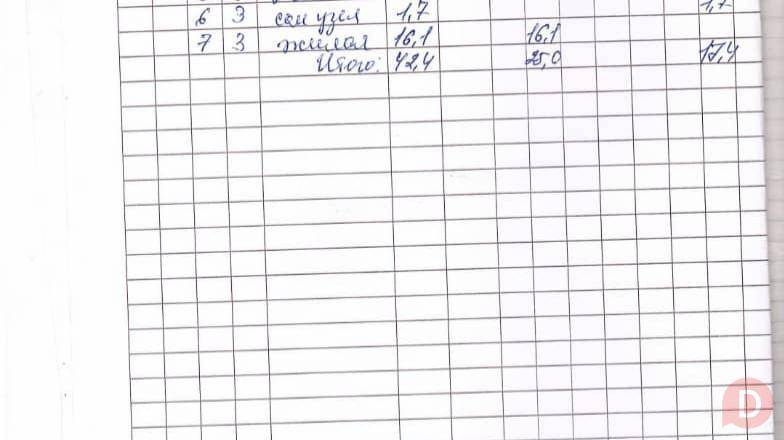 6 3 сан узел 1,7 1,7
7 3 жилая 16,1 16,1
Итого: 42,4 25,0 17,4
D